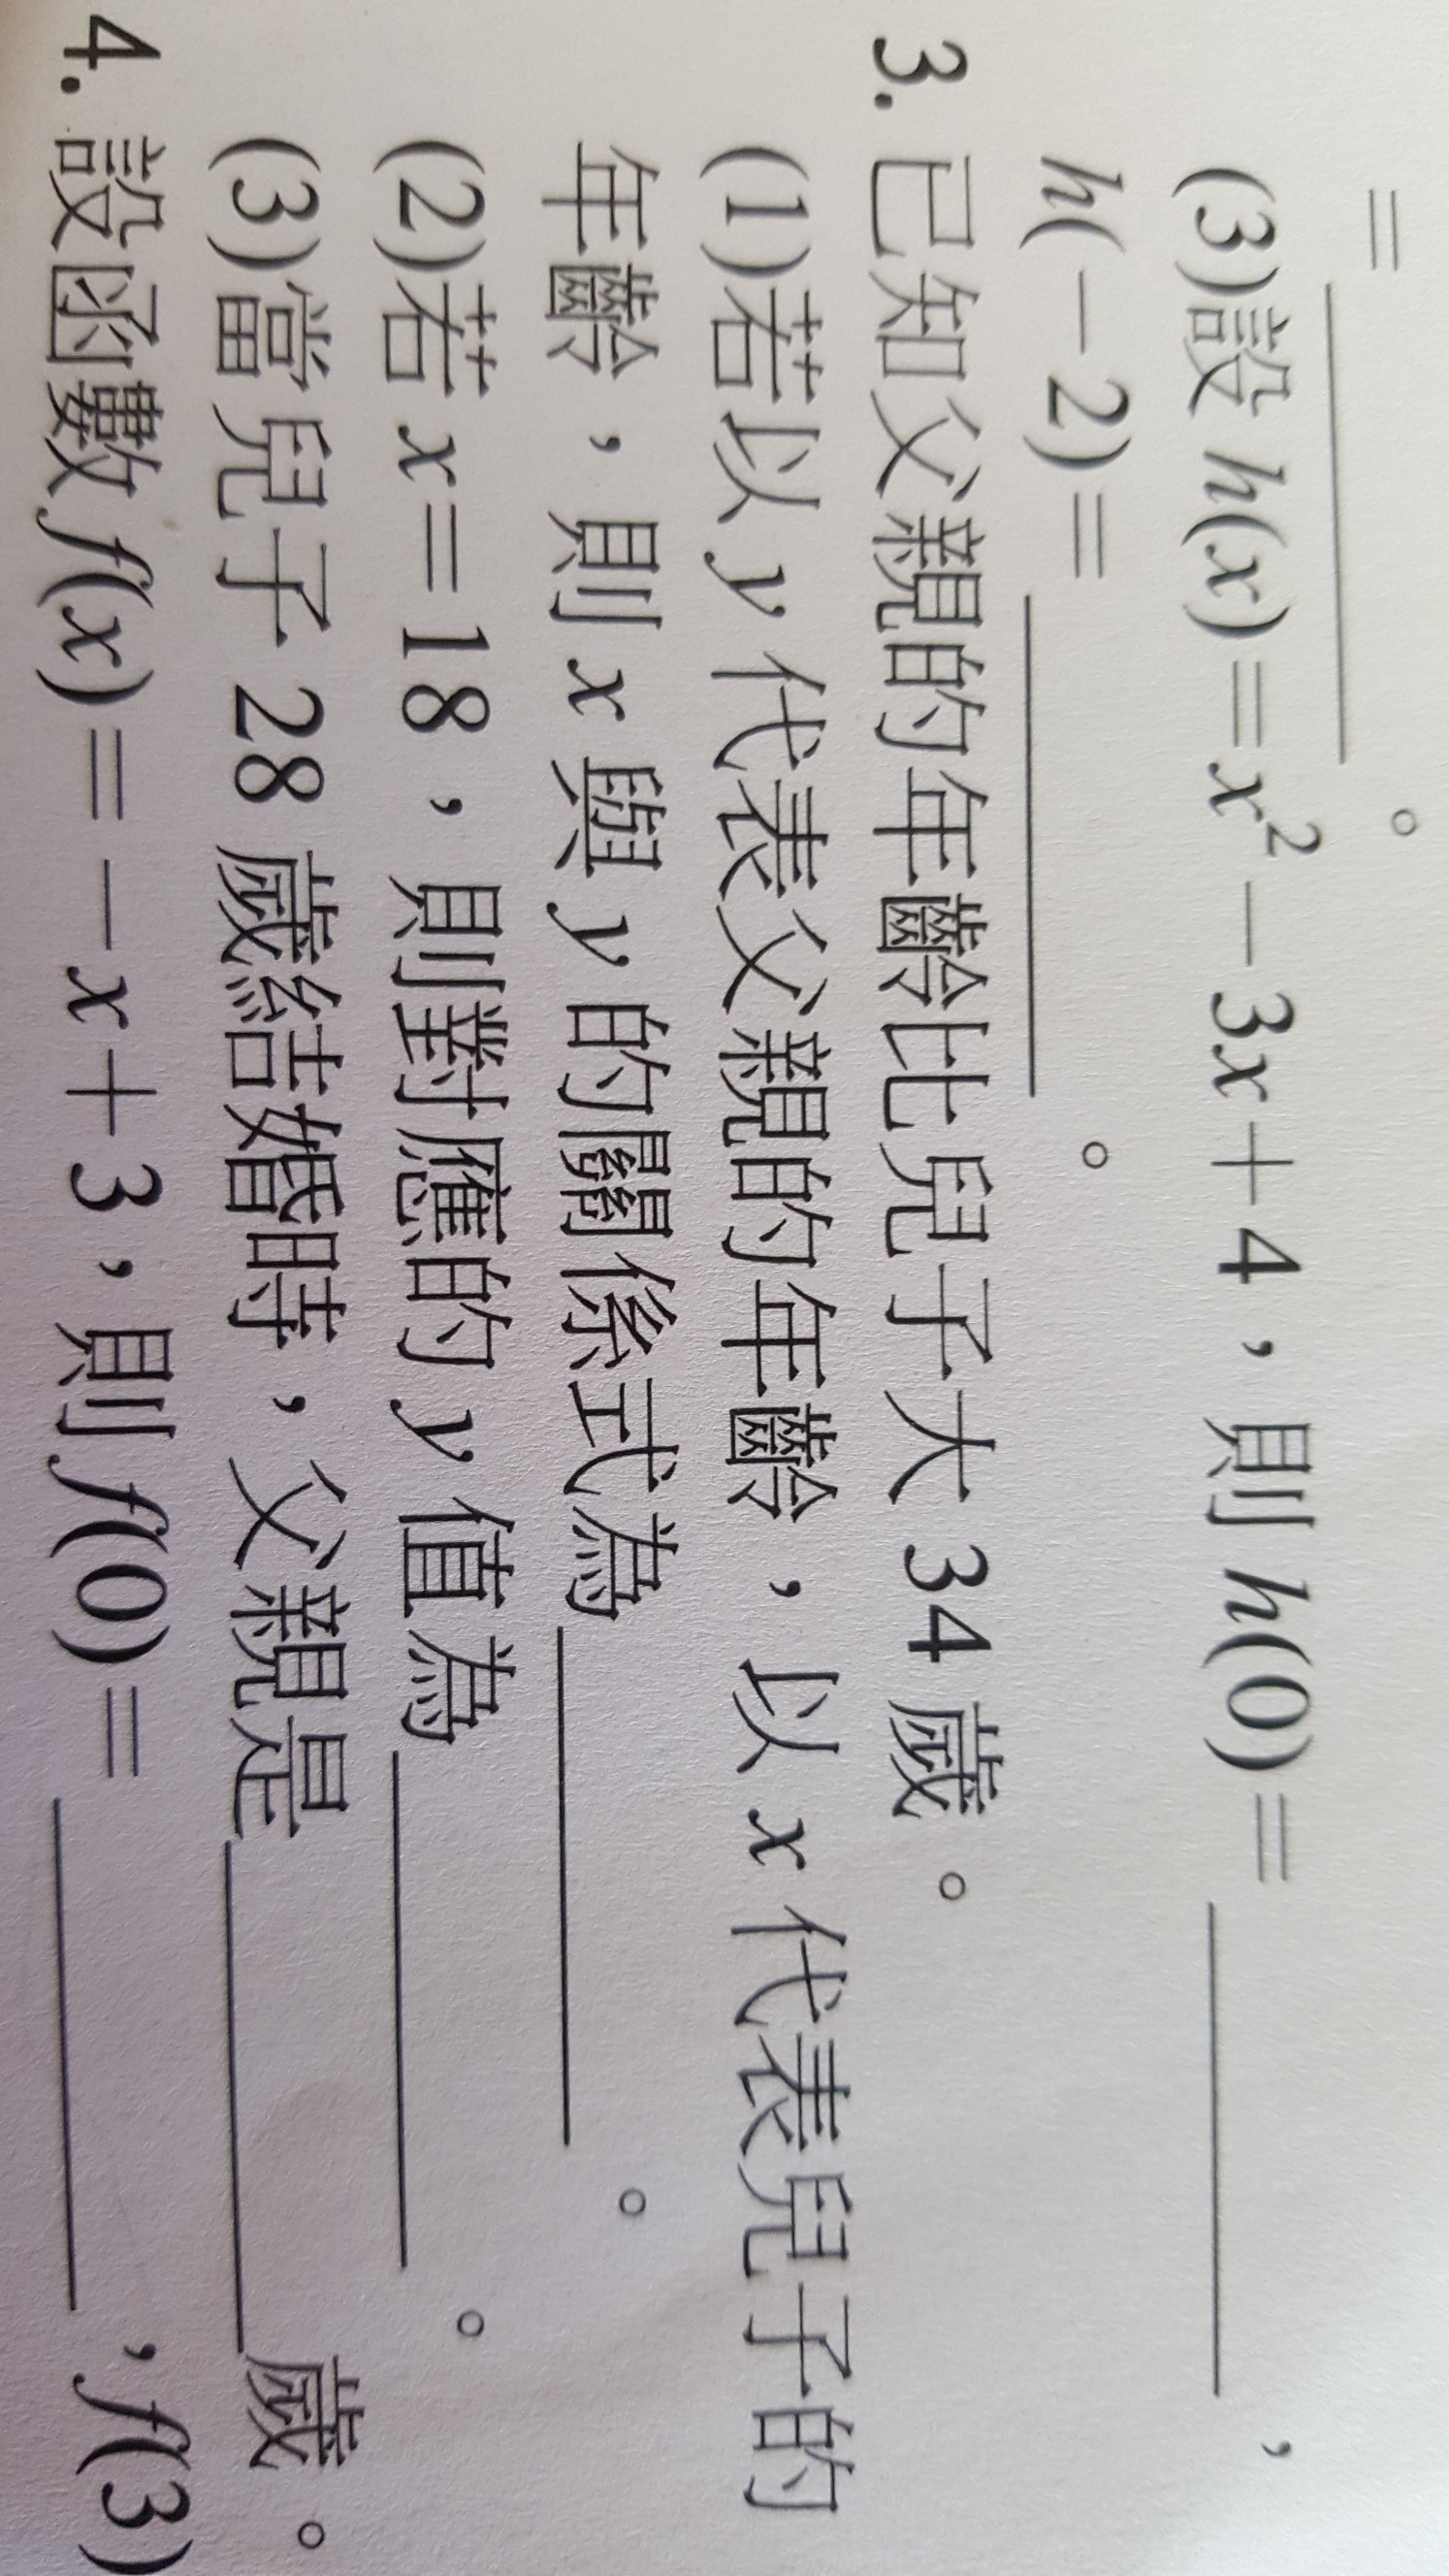 =________。
(3)設 h(x)=x²-3x+4，則 h(0)=________，
h(-2)=________。
3. 已知父親的年齡比兒子大 34 歲。
(1)若以 y 代表父親的年齡，以 x 代表兒子的
年齡，則 x 與 y 的關係式為________。
(2)若 x=18，則對應的 y 值為________。
(3)當兒子 28 歲結婚時，父親是________歲。
4. 設函數 f(x)=-x+3，則 f(0)=________，f(3)